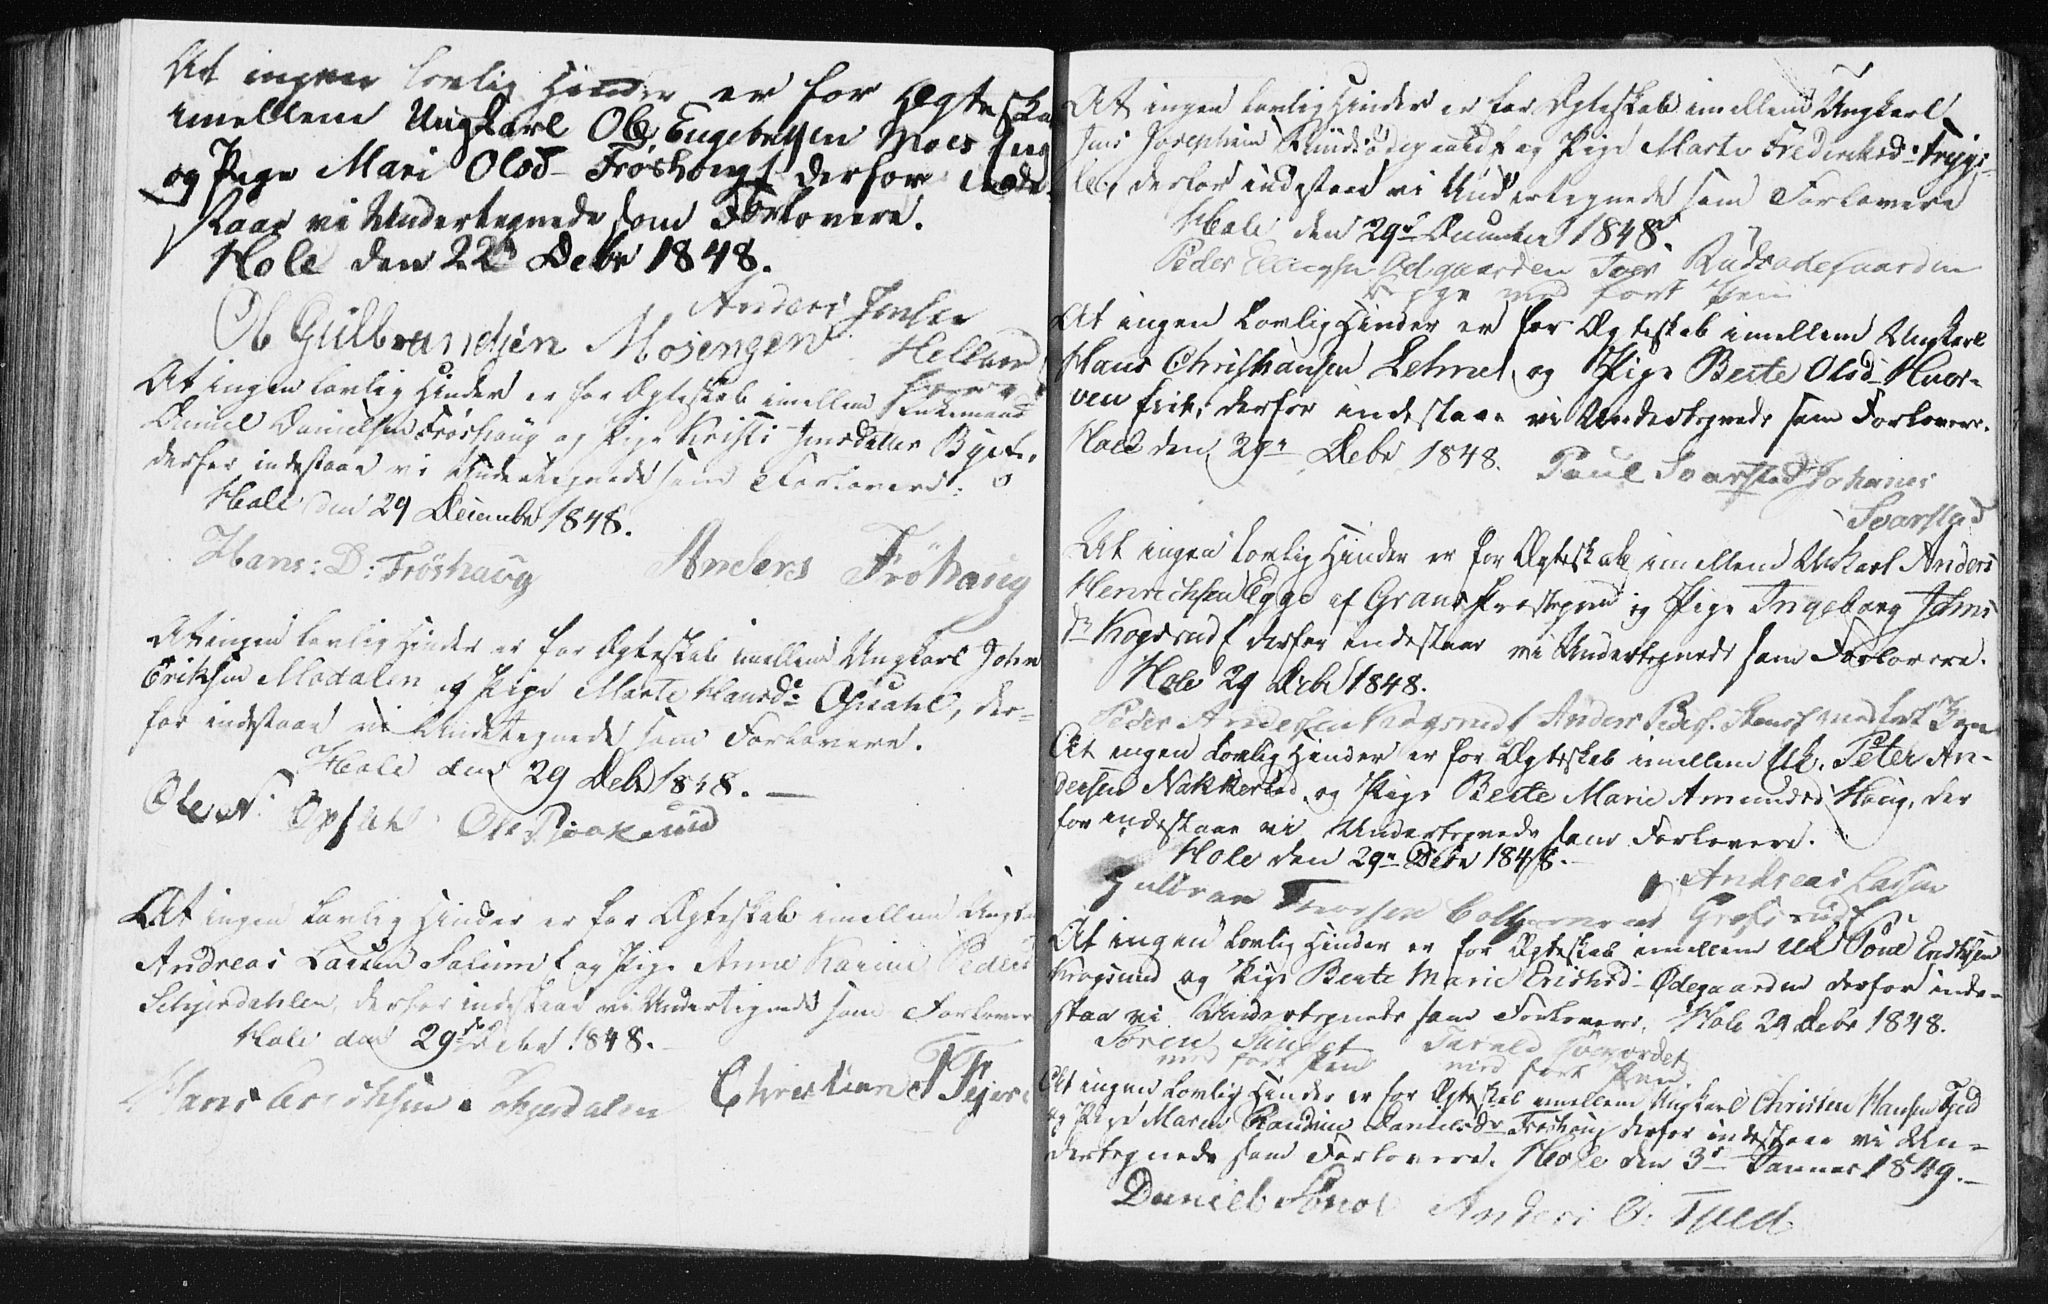 At ingen lovlig Hinder er for Ægteska
imellem Ungkarl Ole Engebretsen Moes
og Pige Mari Olsd Frøshoug f derfor inde-
staae vi Undertegnede som Forlovere.
Hole den 22 Debr 1848.
Anders Jensen
Ole Gulbrandsen Mosengen Helland
At ingen lovlig Hinder er for Ægteskab imellem Enkemand
Daniel Danielsen Frøshoug og Pige Kristi Jensdatter
derfor indestaae vi Undertegnede som Forlovere.
Hole den 29 December 1848.
Hans: D: Frøshaug Anders Fröhaug
At ingen lovlig Hinder er for Ægteskab imellem Ungkarl John
Eriksen Modalen og Pige Marte Hansd: Opsahl, der-
for indestaae vi Undertegnede som Forlovere.
Hole den 29 Debr 1848.
Ole N. Opsahl Ole
At ingen lovlig Hinder er for Ægteskab imellem Ungk
Andreas Larsen og Pige Anne Karine Peders
Schjerdahlen, derfor indestaae vi Undertegnede som Forlovere
Hole den 29de Debr 1848.
Hans Erichsen Schjerdalen Christian
At ingen lovlig Hinder er for Ægteskab imellem Ungkarl
Jens Josephsen og Pige Marte Frederiksd: Trygs-
lei, derfor indestaae vi Undertegnede som Forlovere
Hole den 29de December 1848.
Peder Ellingsen
med ført Pen
At ingen lovlig Hinder er for Ægteskab imellem Ungkarl
Hans Christiansen Lehne, og Pige Berte Olsd Hver-
ven Eie, derfor indestaae vi Undertegnede som Forlovere.
Hole den 29de Debr 1848. Paul Svarstad Johanes
Svarstad
At ingen lovlig Hinder er for Ægteskab imellem Ukarl Anders
Henrichsen Egge af Grans Præstegjeld og Pige Ingeborg Johns
dr Krogsrud f derfor indestaae vi Undertegnede som Forlovere.
Hole 29 Debr 1848.
Peder Andersen Krogsrud Anders Peders. med ført Pen
At ingen lovlig Hinder er for Ægteskab imellem Uk. Peter An-
dersen Nakkerud, og Pige Berte Marie Amundsd Houg, der
for indestaae vi Undertegnede som Forlovere.
Hole den 29de Debr 1848.
Andreas Larsen
At ingen lovlig Hinder er for Ægteskab imellem Uk Poul Erichsen
Krogsrud og Pige Berte Marie Erichsd: Ødegaarden derfor inde-
staae vi Undertegnede som Forlovere. Hole 29 Debr 1848.
Søren
med ført Pen med ført Pen
At ingen lovlig Hinder er for Ægteskab imellem Ungkarl Christen Hansen Fjeld
og Pige Maren Danielsdr Frøshoug derfor indestaae vi Un-
dertegnede som Forlovere. Hole den 3de Januar 1849.
Daniel Anders O: Fjeld